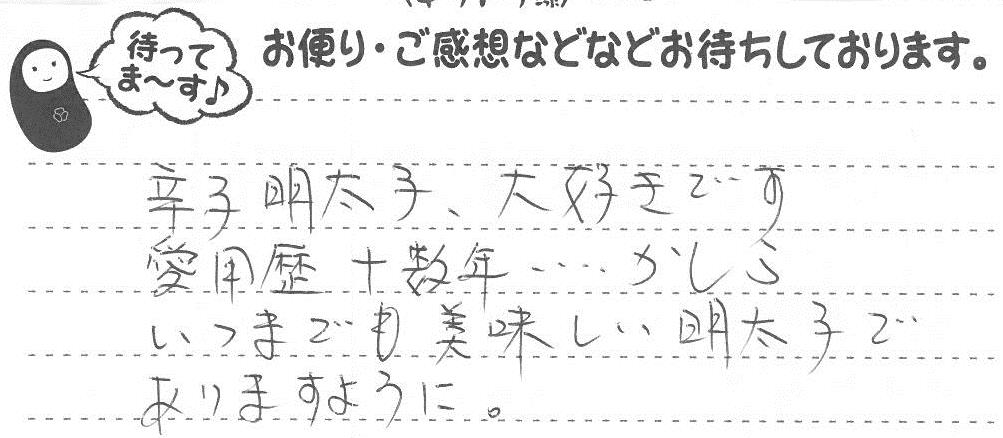 待って
ま〜す♪
お便り・ご感想などなどお待ちしております。
辛子明太子、大好きです
愛用歴 十数年‥‥かしら
いつまでも美味しい明太子で
ありますように。